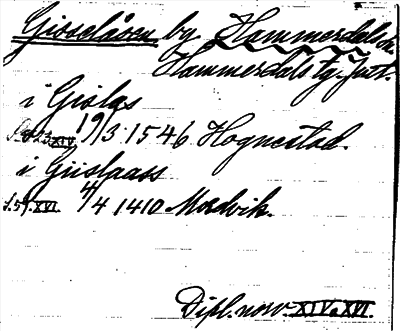 Gisselåsen by. Hammerdals s.
Hammerdals tg. Jmt.
i Gislas
S. 823 XIV. 19/3 1546 Hognestad.
i Giislaass
S. 59 XVI. 4/4 1410 Mordvik.
Dipl. norv. XIV o XVI.